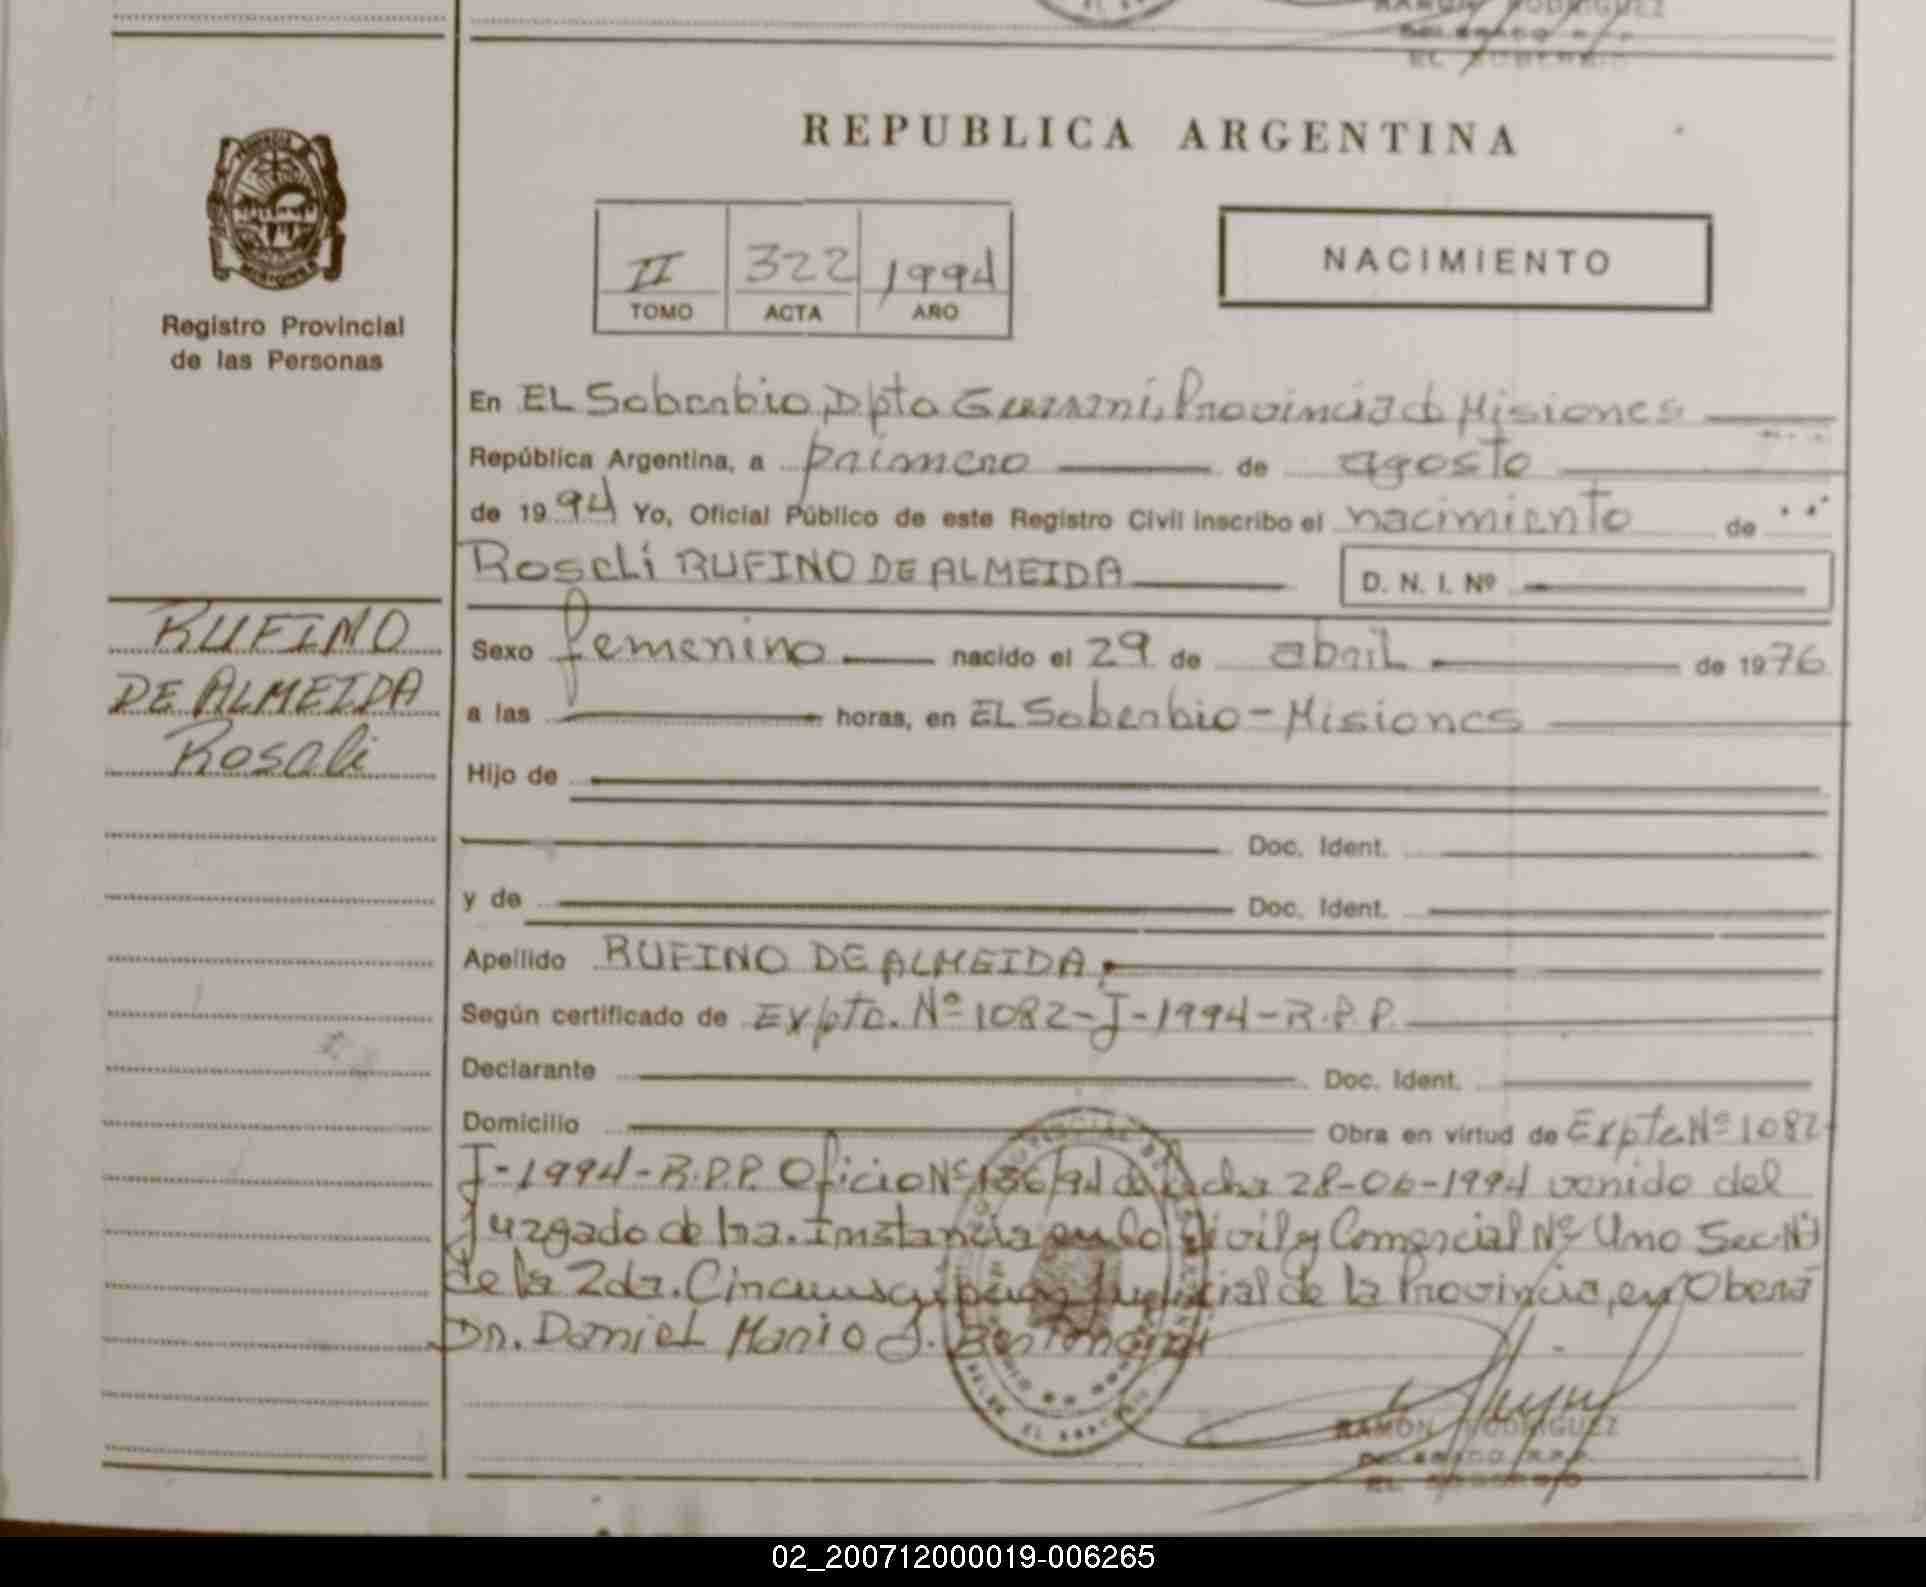 RAMON RODRIGUEZ
EL SOBERBIO
REPUBLICA ARGENTINA
PROVINCIA
MISIONES
Registro Provincial
de las Personas
II 322 1994
TOMO ACTA AÑO
NACIMIENTO
En EL Soberbio, Dpto Guaraní, Provincia de Misiones
República Argentina, a primero de agosto
de 1994 Yo, Oficial Público de este Registro Civil inscribo el nacimiento de
Roseli RUFINO DE ALMEIDA D. N. I. Nº
RUFINO
DE ALMEIDA
Roseli
Sexo femenino nacido el 29 de abril de 1976
a las horas, en EL Soberbio - Misiones
Hijo de
Doc. Ident.
y de Doc. Ident.
Apellido RUFINO DE ALMEIDA,
Según certificado de Expte. Nº 1082-J-1994-R.P.P.
Declarante Doc. Ident.
Domicilio Obra en virtud de Expte Nº 1082-
J-1994-R.P.P. Oficio Nº 136/94 de fecha 28-06-1994 venido del
Juzgado de 1ra. Instancia en lo Civil y Comercial Nº Uno Sec. Nº1
de la 2da. Circunscripcion Judicial de la Provincia, en Oberá
Dr. Daniel Mario J.
RAMON RODRIGUEZ
DELEGADO R.P.P.
EL SOBERBIO
02_200712000019-006265